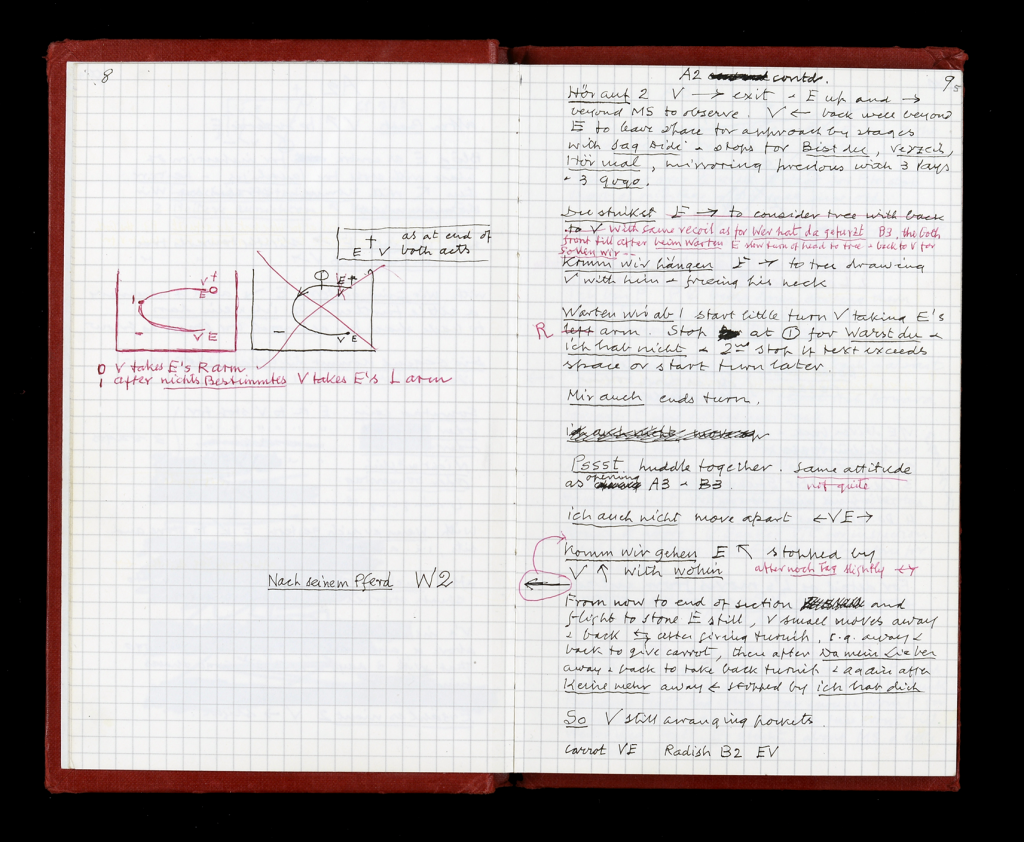 8
E † V as at end of
both acts
V †
E
V E
V E
0 V takes E's R arm
1 after nichts Bestimmtes V takes E's L arm
Nach seinem Pferd W2
9
A2 contd.
Hör auf 2 V → exit & E up and →
beyond MS to observe. V ← back well beyond
E to leave space for approach by stages
with sag side & stops for Bist du, verzeih,
Hör mal, mirroring previous with 3 Pays
& 3 gogo.
Du stinkst E → to consider tree with back
to V with same recoil as for Wer hat da gefurzt B3, the both
front till after beim Warten E slow turn of head to tree & back to V for
Sollen wir --
Komm wir hängen E → to tree drawing
V with him & freeing his neck
Warten wir ab 1 start little turn V taking E's
R left arm. Stop at ① for Warst du &
ich hab nicht & 2nd stop if text exceeds
space or start turn later.
Mir auch ends turn.
Pssst huddle together. Same attitude
as opening A3 & B3. not quite
ich auch nicht move apart ← VE →
Komm wir gehen E ↖ stopped by
V ↑ with wohin after noch Tag slightly ↔
From now to end of section and
flight to stone E still, V small moves away
& back ⇆ after giving turnip, e.g. away &
back to give carrot, then after Da mein Lieber
away & back to take back turnip & again after
Keine mehr away & stopped by ich hab dich
So V still arranging pockets
Carrot VE Radish B2 EV